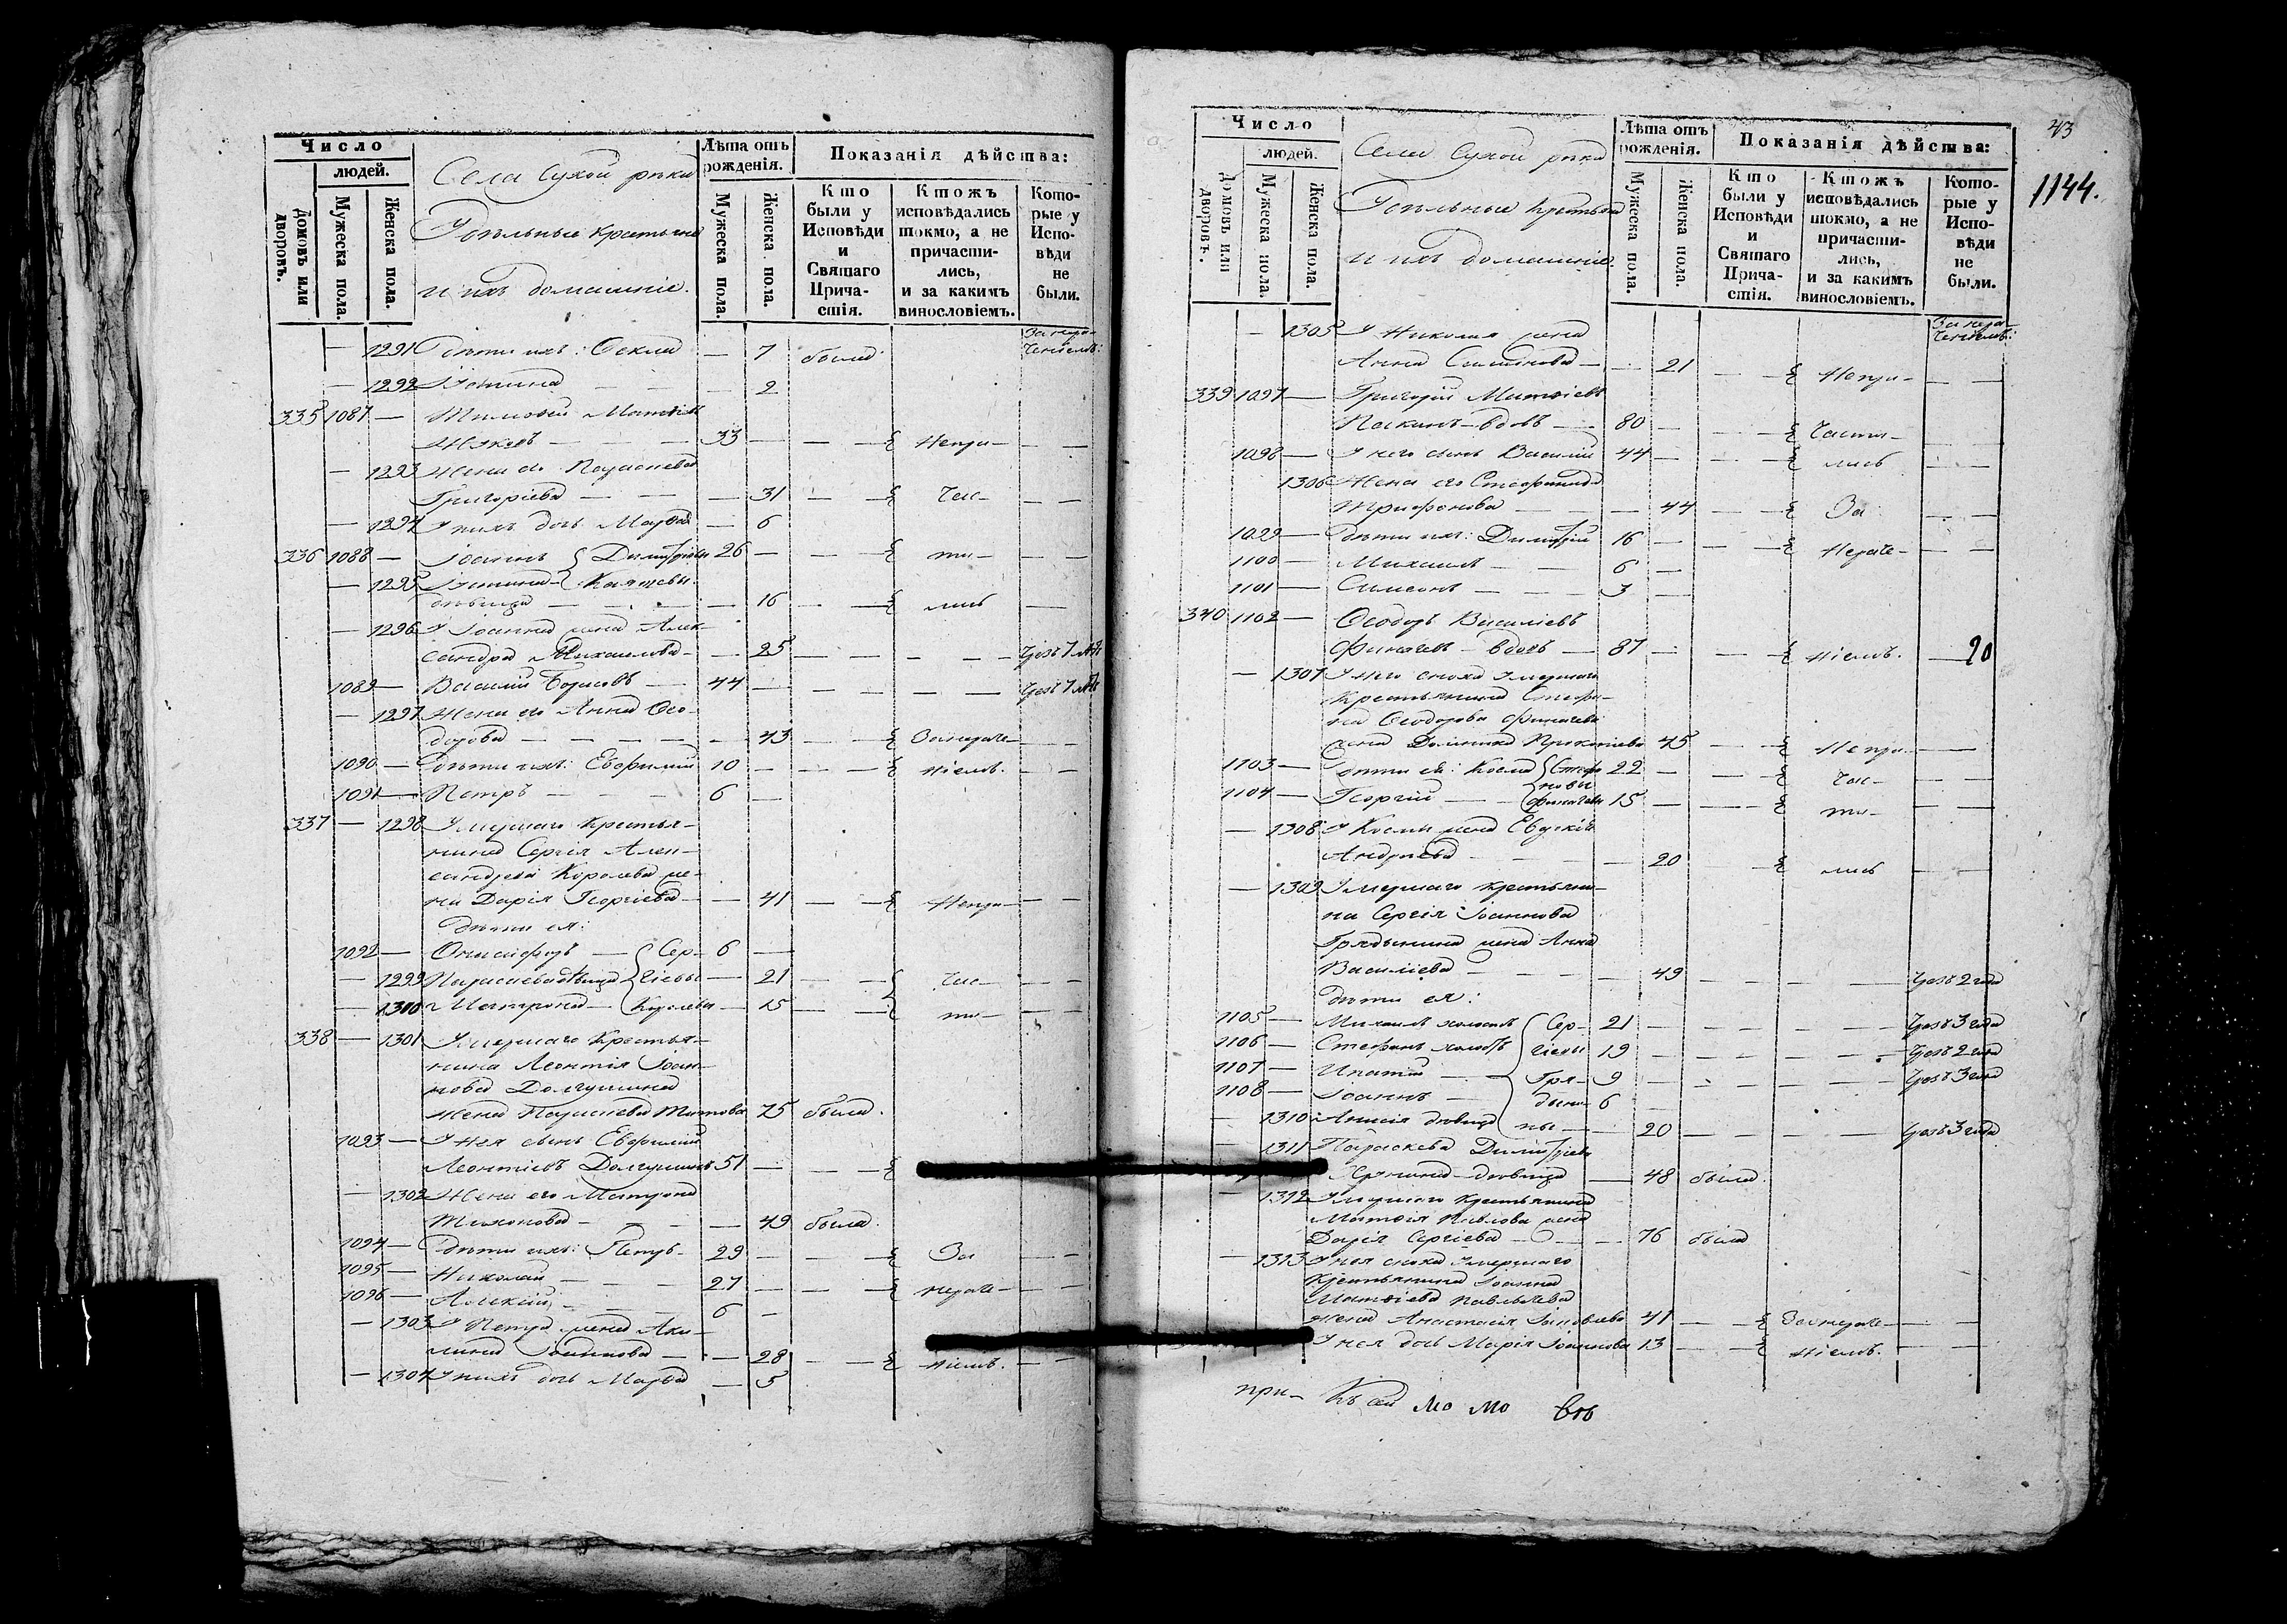 Число
людей.
Домовъ или дворовъ.
Мужеска пола.
Женска пола.
Села Сухой рѣки
Удѣльные крестьяне
и ихъ домашніе.
Лѣта отъ рожденія.
Мужеска пола.
Женска пола.
Показанія дѣйства:
Кто были у Исповѣди и Святаго Причастія.
Ктожъ исповѣдались токмо, а не причастились, и за какимъ винословіемъ.
Которые у Исповѣди не были.
За нера-
чениемъ:
— 1291 Дѣти ихъ: Ѳекла — 7 была
— 1292 Іустина — — — 2
335 1087 — Тимоѳей Матѳіевъ
— — — 33 — — — Непри- — —
— 1293 Жена его Параскева
Григоріева — — — 31 — — час- — —
— 1294 У нихъ дочь Марѳа — 6
336 1088 — Іоаннъ Димитріевы 26 — — — ти- — —
— 1295 Іустина
дѣвица — — — 16 — — лись —
— 1296 У Іоанна жена Алек-
сандра Михаилова — — 25 — — — — Чрезъ 7 лѣт
1089 — Василій Борисовъ — 44 — — — — — Чрезъ 7 лѣт
— 1297 Жена его Анна Ѳео-
дорова — — — — — 43 — — Занераче- — —
1090 — Дѣти ихъ: Евфимій 10 — — — ніемъ. — —
1091 — Петръ — — — 6 —
337 — 1298 Умершаго крестья-
нина Сергія Алек-
сандрова Королева же-
на Дарія Георгіева — — 41 — — Непри- — —
Дѣти ея:
1092 — Онисифоръ — Сер- 6 —
— 1299 Параскева дѣвица гіевы — 21 — — Час- — —
— 1300 Матрона — Королевы — 15 — — ти- — —
338 — 1301 Умершаго крестья-
нина Леонтія Іоан-
нова Долгушина
жена Параскева Титова 75 была.
1093 — У нея сынъ Евфимій
Леонтіевъ Долгушинъ 51 — — —
— 1302 Жена его Матрона
Тихонова — — — — 49 была.
1094 — Дѣти ихъ: Петръ — 29 — — — За — —
1095 — Николай — — — 27 — — — нераче- — —
1096 — Алексій — — — 6 —
— 1303 У Петра жена Аку-
лина Іоаннова — — 28 — — ніемъ. — —
— 1304 У нихъ дочь Марѳа — 5
43
1144.
Число
людей.
Домовъ или дворовъ.
Мужеска пола.
Женска пола.
Села Сухой рѣки
Удѣльные крестьяне
и ихъ домашніе.
Лѣта отъ рожденія.
Мужеска пола.
Женска пола.
Показанія дѣйства:
Кто были у Исповѣди и Святаго Причастія.
Ктожъ исповѣдались токмо, а не причастились, и за какимъ винословіемъ.
Которые у Исповѣди не были.
За нера-
чениемъ:
— 1305 У Николая жена
Анна Симеонова — — 21 — — Непри- — —
339 1097 — Григорій Матѳіевъ
вдовъ — 80 — — — части- — —
1098 — У него сынъ Василій 44 — — — лись — —
1306 Жена его Стефанида
Трифонова — — — 44 — — За — —
1099 — Дѣти ихъ: Димитрій 16 — — — Нераче- — —
1100 — Михаилъ — — 6 —
1101 — Симеонъ — — — 3 —
340 1102 — Ѳеодоръ Василіевъ
Финагевъ — вдовъ — 87 — — — ніемъ. — 20
— 1307 У него сноха умершаго
крестьянина Стефа-
на Ѳеодорова Финагева
жена Домника Прокопіева 45 — — Непри- —
1103 — Дѣти ея: Косма Стефа- 22 — — — час- —
1104 — Георгій — — новы Финагевы 15 — — — ти- — —
— 1308 У Космы жена Евдокія
Андреева — — — — 20 — — лись — —
— 1309 Умершаго крестьяни-
на Сергія Іоаннова
Грядунина жена Анна
Василіева — — — — 49 — — — — Чрезъ 2 года
Дѣти ея:
1105 — Михаилъ холостъ Сер- 21 — — — — — Чрезъ 3 года
1106 — Стефанъ холостъ гіевы 19 — — — — — Чрезъ 2 года
1107 — Ипатій — Гря- 9 — — — — — Чрезъ 3 года
1108 — Іоаннъ — дуни- 6 —
— 1310 Анисія дѣвица ны — 20 — — — — Чрезъ 3 года
— 1311 Параскева Димитріева
дѣвица — 48 была.
— 1312 Умершаго крестьянина
Матѳія Павлова жена
Дарія Сергіева — — — 76 была
— 1313 У нея сноха умершаго
крестьянина Іоанна
Матѳіева Павлычева
жена Анастасія Іаковлева 41 — — Занераче- — —
У нея дочь Марія Іоаннова 13 — — ніемъ. — —
при- Къ сей